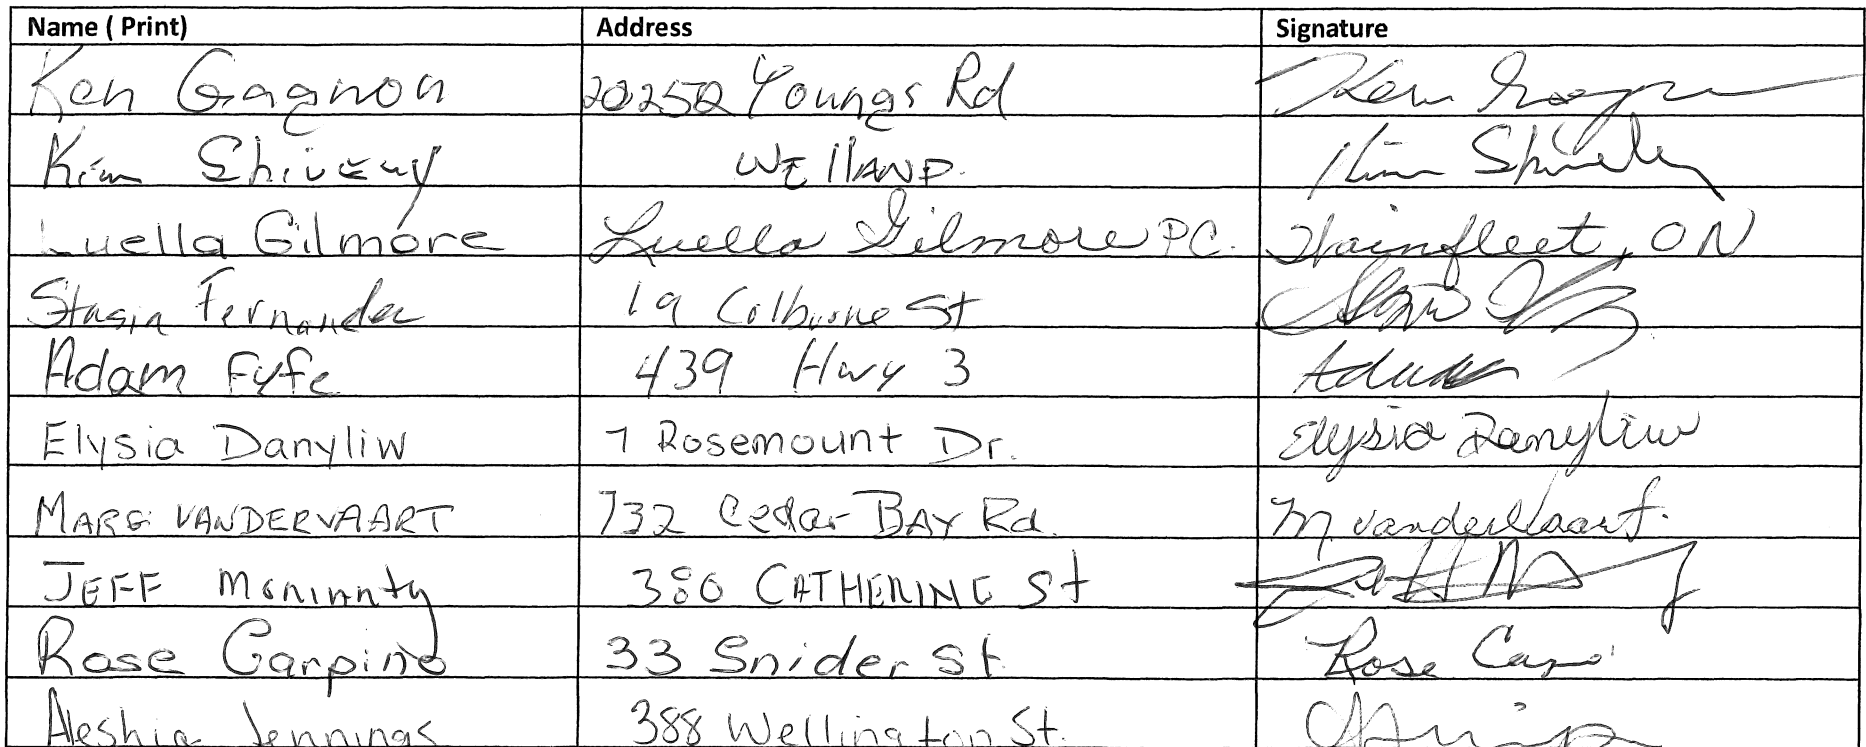 Name ( Print) Address Signature
Ken Gagnon 20250 Youngs Rd Ken
Kim Shivery WEllAND. Kim
Luella Gilmore Luella Gilmore PC. Wainfleet, ON
Stasia Fernandez 19 Colborne St
Adam Fyfe 439 Hwy 3 Adam
Elysia Danyliw 7 Rosemount Dr. Elysia Danyliw
MARG VANDERVAART 732 Cedar BAY Rd. M. VanderVaart.
JEFF 380 CATHERINE St
Rose Carpino 33 Snider St. Rose
Aleshia Jennings 388 Wellington St.